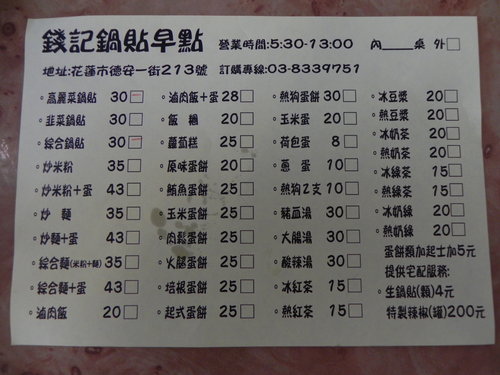 錢記鍋貼早點 營業時間:5:30-13:00 內____桌 外□
地址:花蓮市德安一街213號 訂購專線:03-8339751
。高麗菜鍋貼 30□
。韭菜鍋貼 30□
。綜合鍋貼 30□
。炒米粉 35□
。炒米粉+蛋 43□
。炒 麵 35□
。炒麵+蛋 43□
。綜合麵(米粉+麵) 35□
。綜合麵+蛋 43□
。滷肉飯 20□
。滷肉飯+蛋 28□
。飯 糰 20□
。蘿蔔糕 25□
。原味蛋餅 20□
。鮪魚蛋餅 25□
。玉米蛋餅 25□
。肉鬆蛋餅 25□
。火腿蛋餅 25□
。培根蛋餅 25□
。起式蛋餅 25□
。熱狗蛋餅 30□
。玉米蛋 20□
。荷包蛋 8□
。蔥 蛋 10□
。熱狗2支 10□
。豬血湯 30□
。大腸湯 30□
。酸辣湯 30□
。冰紅茶 15□
。熱紅茶 15□
。冰豆漿 20□
。熱豆漿 20□
。冰奶茶 20□
。熱奶茶 20□
。冰綠茶 15□
。熱綠茶 15□
。冰奶綠 20□
。熱奶綠 20□
蛋餅類加起士加5元
提供宅配服務:
。生鍋貼(顆)4元
特製辣椒(罐)200元